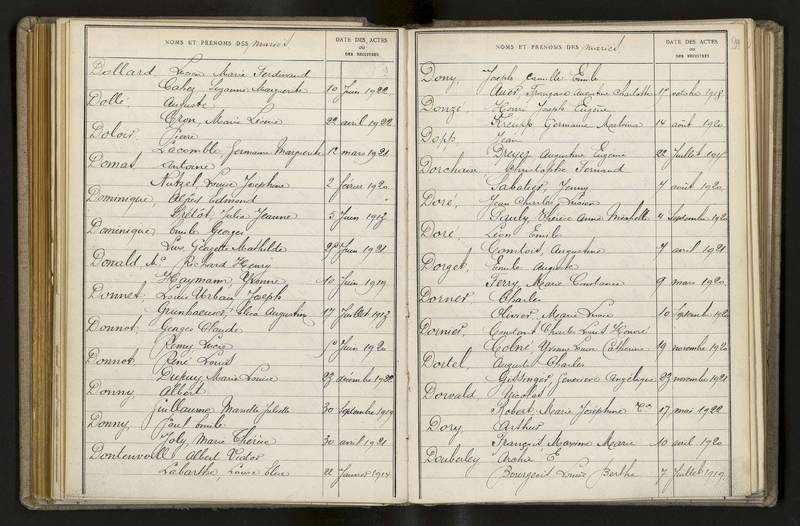 NOMS ET PRÉNOMS DES mariés
DATE DES ACTES
OU
DES REGISTRES
Bollard, Lucien Marie Ferdinand
Cahez, Suzanne Marguerite 10 Juin 1922
Dollé, Auguste
Cron, Marie Léonie 22 avril 1922
Doloir, Pierre
Lacomble, Germaine Marguerite 12 mars 1921
Domas, Antoine
Nutzel Louise Joséphine 2 février 1920
Dominique, Alfred Edmond
Brélot, Julia Jeanne 5 Juin 1913
Dominique, Emile Georges
Luc, Georgette Mathilde Juin 1921
Donald, Richard Henry
Haymann, Yvonne 10 Juin 1919
Donnet, Louis Urbain Joseph
Augustine 17 Juillet 1913
Donnot, Georges Claude
Remy Lucie Juin 1920
Donnot, René Louis
Dupuy Marie Louise 23 décembre 1922
Donny, Albert
Guillaume Mariette Juliette 30 Septembre 1919
Donny, Paul Emile
Joly, Marie Thérèse 30 avril 1921
Dontenvolle Albert Victor
Labarthe, Louise 22 Janvier 1914
NOMS ET PRÉNOMS DES mariés
DATE DES ACTES
OU
DES REGISTRES
Dony, Joseph Camille Emile
Auer, Françoise Augustine Charlotte octobre 1918
Donzé, Henri Joseph Eugène
Germaine 14 août 1920
Dopp, Jean
Dreyer, Augustine Eugénie 22 Juillet
Dorchain, Christophe Fernand
Sabatier, Jenny 7 août 1920
Doré, Jean Charles Lucien
Thérèse Anne 4 Septembre 1920
Doré, Léon Emile
Comtois, Augustine 7 avril 1921
Dorget, Emile Auguste
Ferry, Marie Constance 9 mars 1920
Dornier Charles
Olivier, Marie Lucie 10 Septembre 1920
Dornier, Constant Charles Louis Honoré
Colné, Yvonne Louise Catherine 19 novembre 1920
Dortel, Auguste Charles
Geneviève Angélique 23 novembre 1921
Dorvald Nicolas
Robert Marie Joséphine 17 mai 1922
Dory, Arthur
François Maxime Marie 10 avril 1920
Douberley Archie E
Bourgeois Louise Berthe 7 Juillet 1919